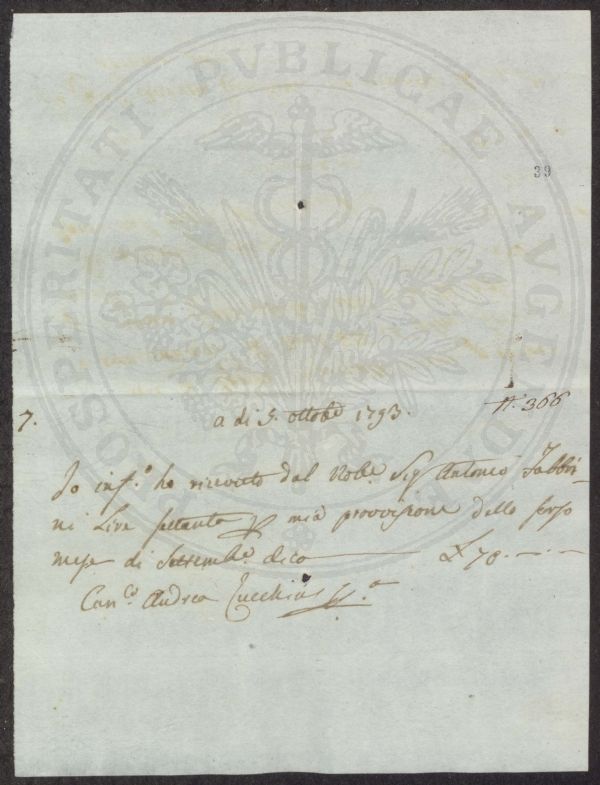 PROSPERITATI PVBLICAE AVGENDAE
39
7.
a di 5. ottobe 1793.
N. 366
Io inf.o ho ricevuto dal Nob.e Sig Antonio Fabbri-
ni Lire setanta p mia provvisione dello scorso
mese di Settembe. dico ——— £ 70. —. —
Can.co Andrea Zucchini